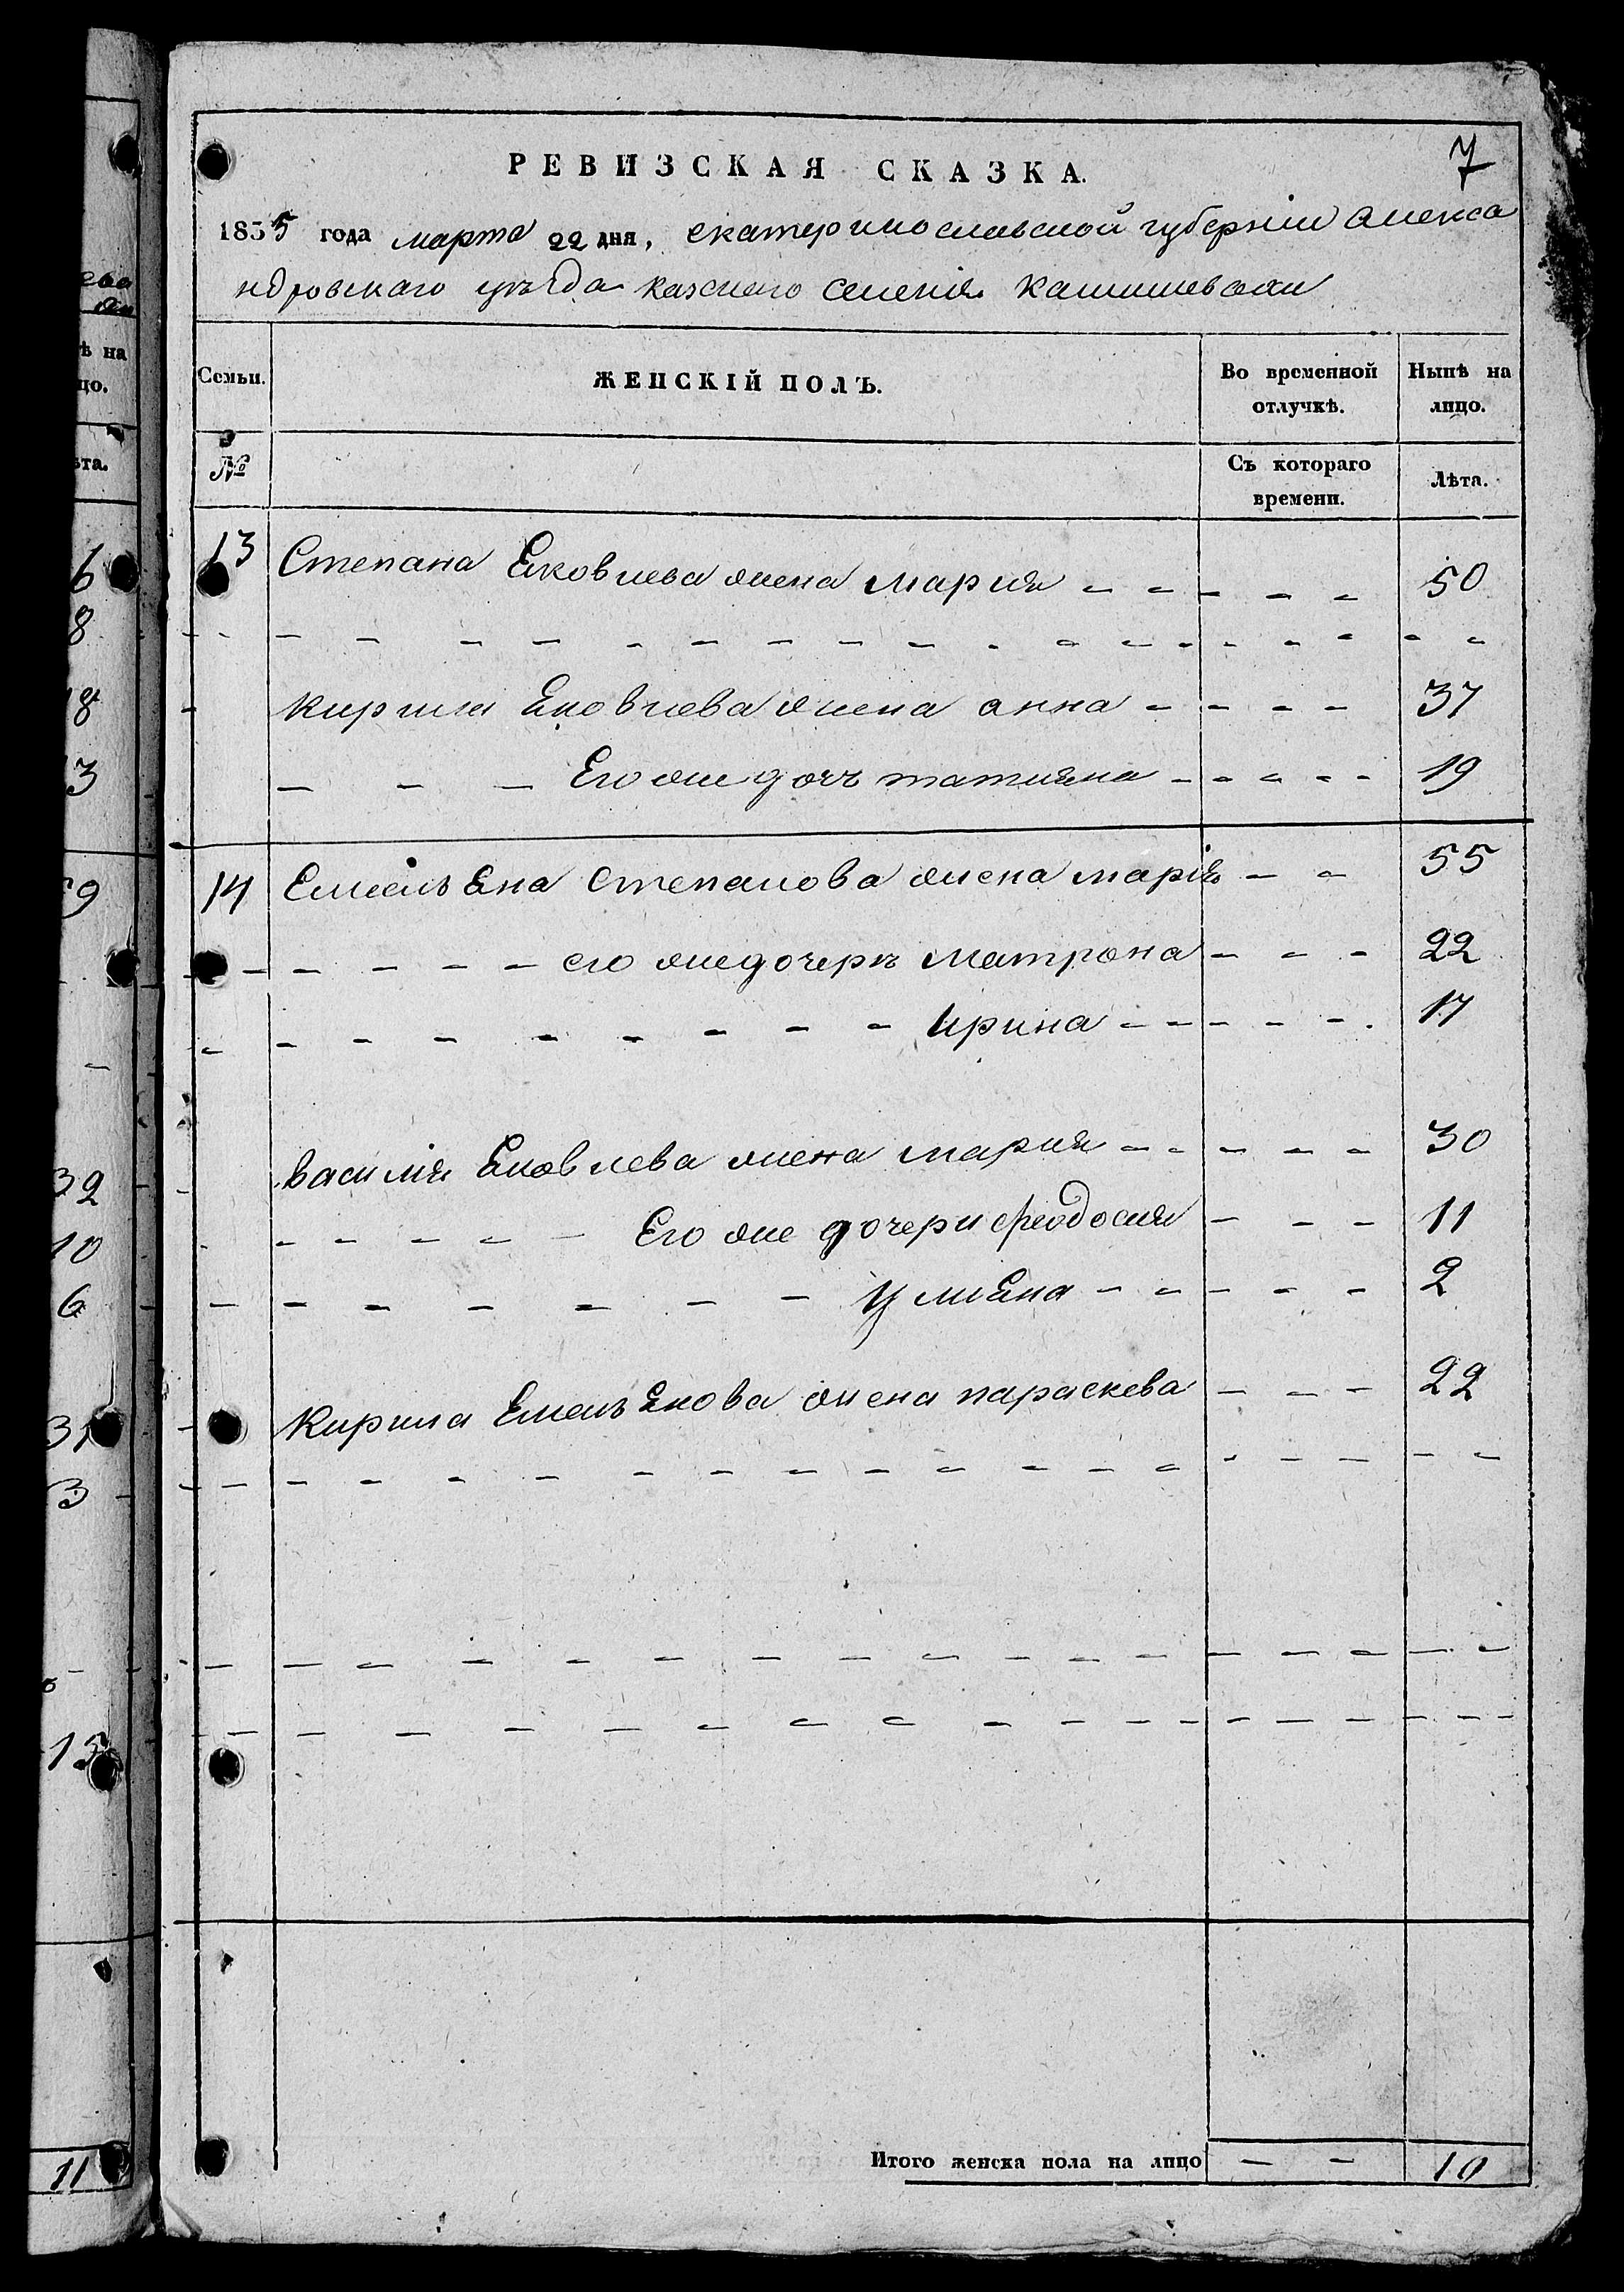 7
РЕВИЗСКАЯ СКАЗКА.
1835 года марта 22 дня, екатеринославской губерніи Алекса
ндровскаго уѣзда казенного селенія камишевахи
Семьи. ЖЕНСКІЙ ПОЛЪ. Во временной отлучкѣ. Нынѣ на лицо.
№ Съ котораго времени. Лѣта.
13 Степана Яковлева жена мария - - - - - 50
- - - - - - - - - - - - - - - - -
кирила Яковлева жена анна - - - - 37
- - - Его же дочь татияна - - - - - 19
14 Емельяна степанова жена марія - - 55
- - - - - его же дочери матрона - - - 22
- - - - - - - - - ирина - - - - - - 17
василия Яковлева жена мария - - - - - 30
- - - - - Его же дочери феодосия - - - 11
- - - - - - - - улияна - - - - - 2
кирила Емельянова жена параскева - - - 22
- - - - - - - - - - - - - - - - - -
- - - - - - - - - - - - - - - - - -
- - - - - - - - - - - - - - - - - -
Итого женска пола на лицо - - 10
6
8
18
13
59
32
10
6
31
3
15
11
ѣ на
цо.
ѣта.